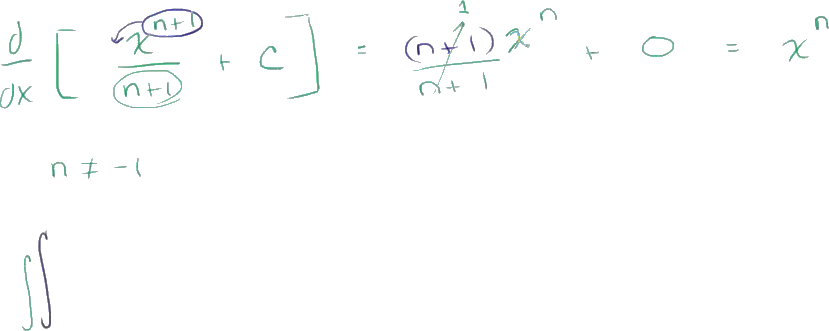 d/dx [ x^(n+1)/(n+1) + C ] = (n+1) x^n/(n+1) + 0 = x^n
1
n ≠ -1
∫∫